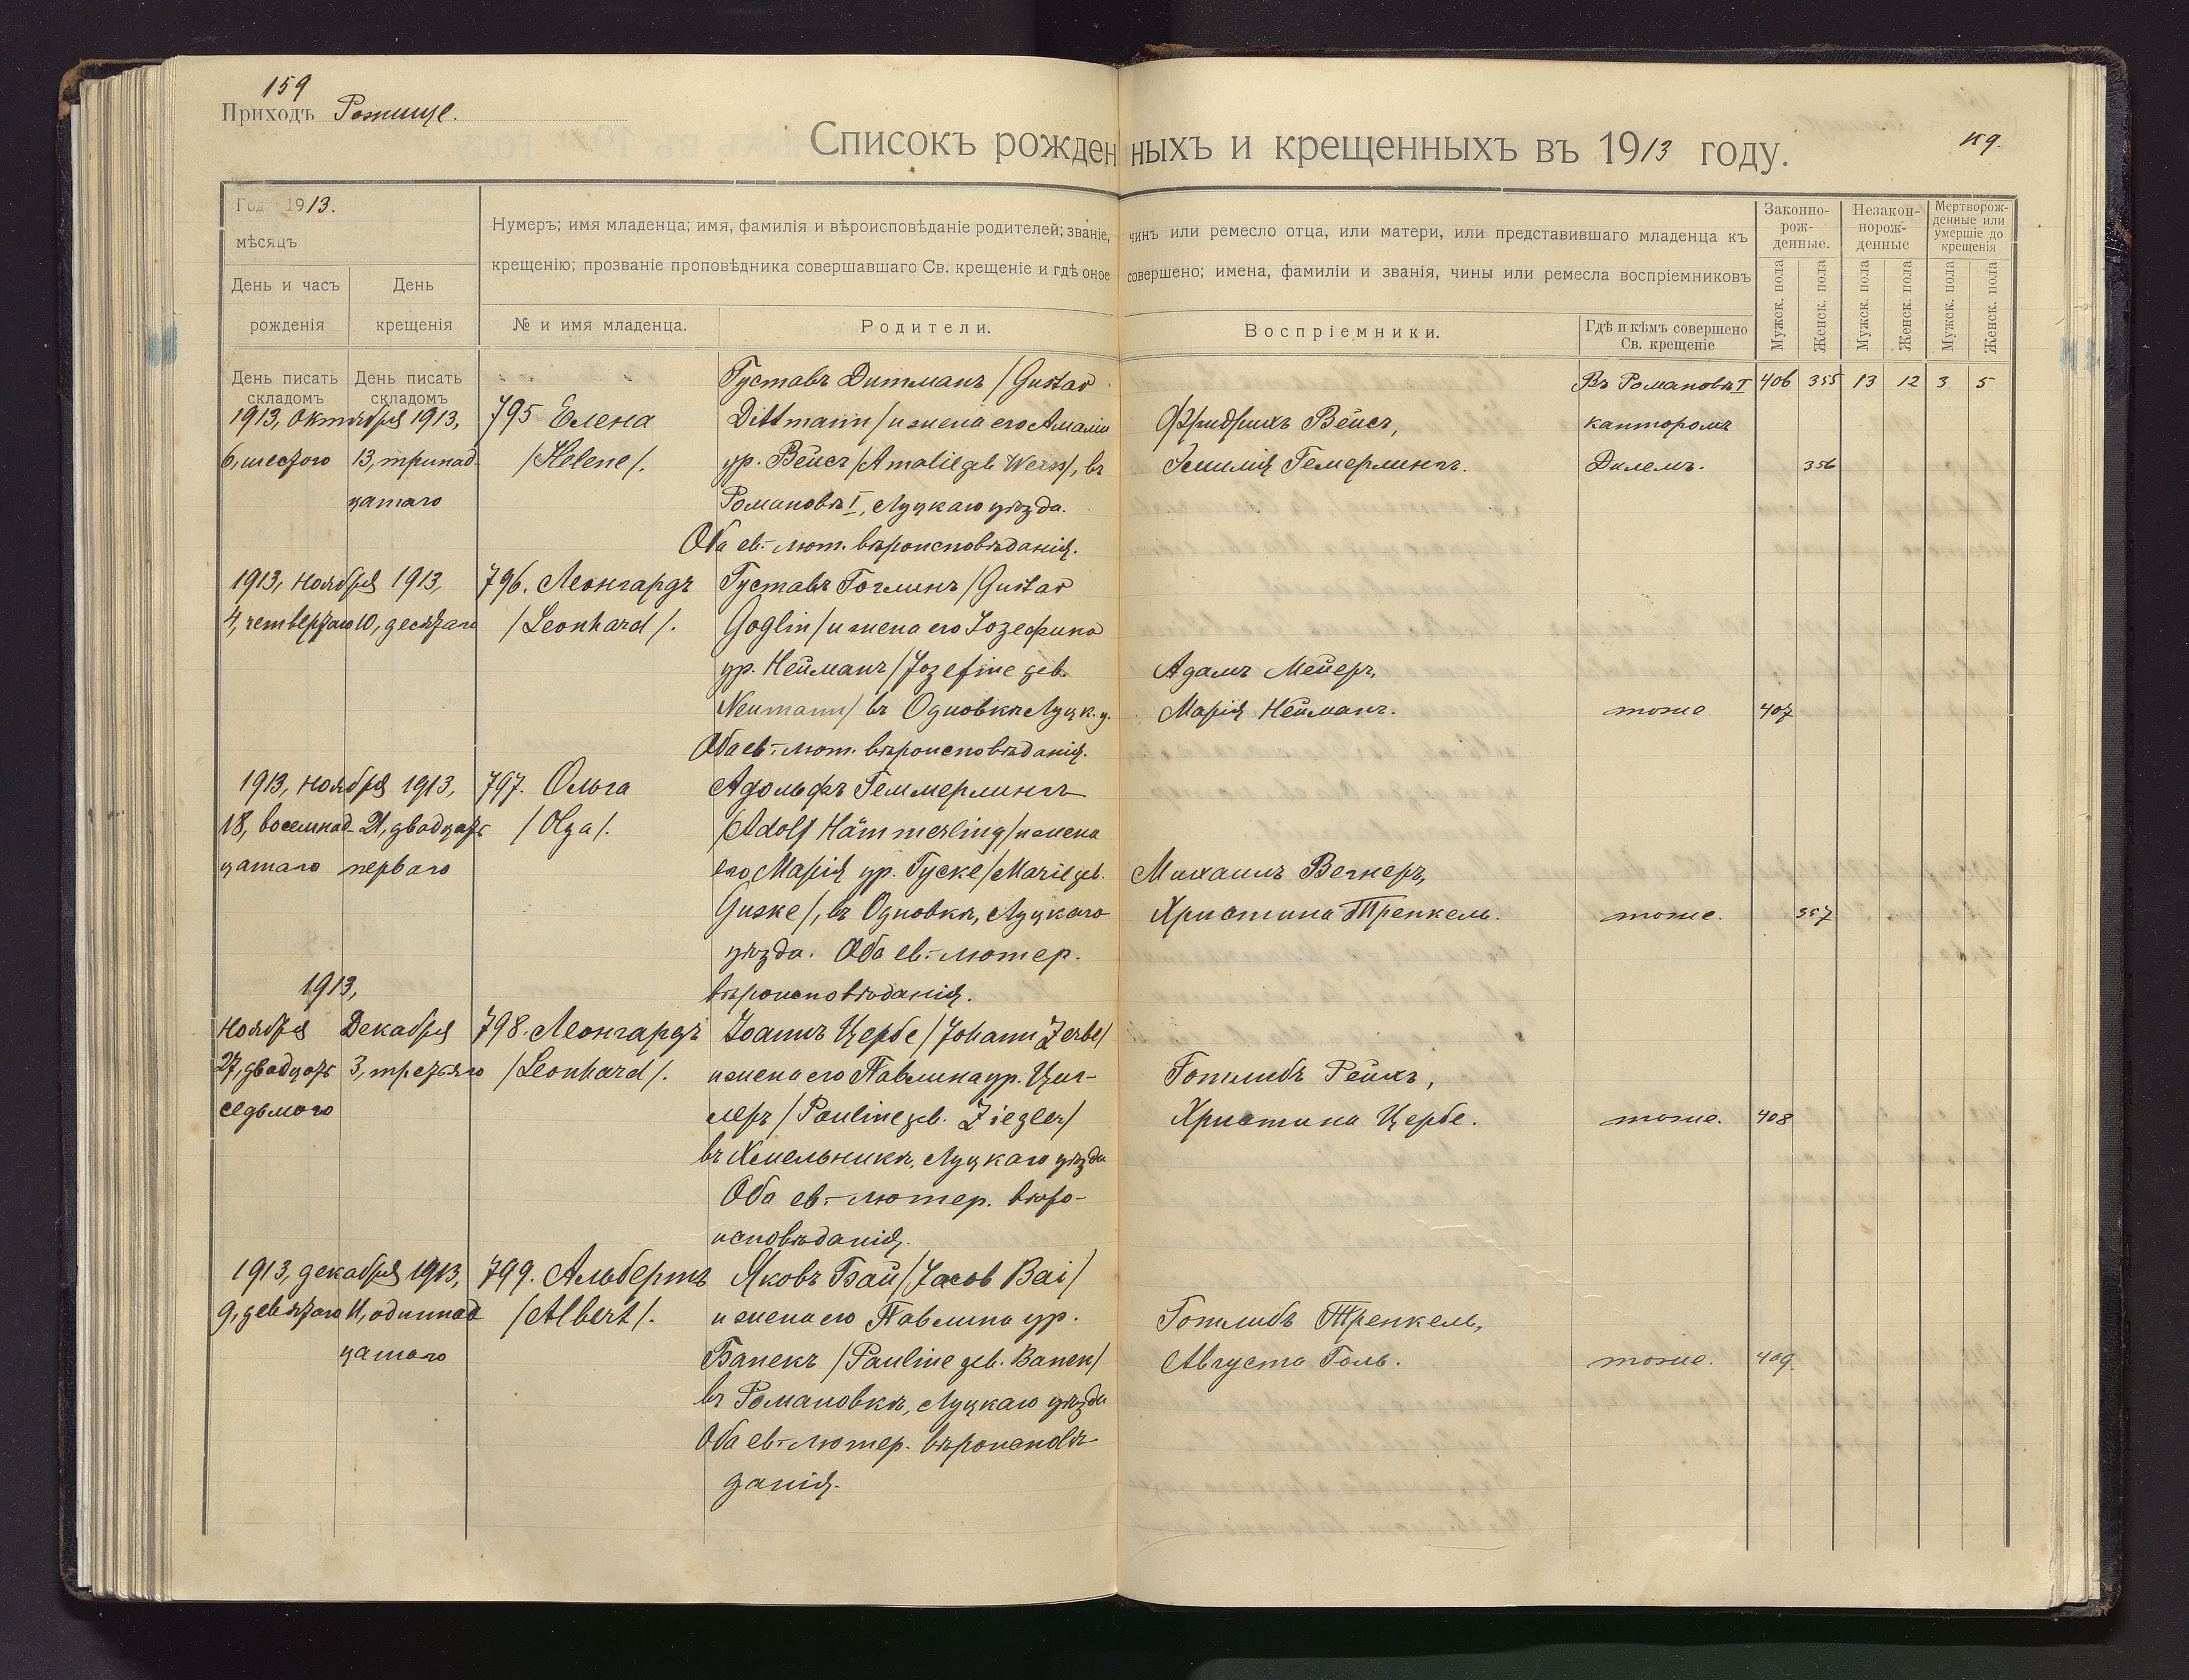 159
Приходъ Рожище.
Списокъ рожденныхъ и крещенныхъ въ 1913 году.
Год 1913.
мѣсяцъ
День и часъ рожденія
День крещенія
Нумеръ; имя младенца; имя, фамилія и вѣроисповѣданіе родителей; званіе, чинъ или ремесло отца, или матери, или представившаго младенца къ
крещенію; прозваніе проповѣдника совершавшаго Св. крещеніе и гдѣ оное совершено; имена, фамиліи и званія, чины или ремесла воспріемниковъ
№ и имя младенца.
Родители.
Воспріемники.
Гдѣ и кѣмъ совершено
Св. крещеніе
Законно-
рож-
денные.
Незакон-
норож-
денные
Мертворож-
денные или
умершіе до
крещенія
Мужск. пола
Женск. пола
Мужск. пола
Женск. пола
Мужск. пола
Женск. пола
День писать
складомъ
День писать
складомъ
406 355 13 12 3 5
1913, октября 1913,
6, шестого
13, тринад-
цатаго
795 Елена
/Helene/.
Густавъ Дитманъ /Gustav
Dittmann/ и жена его Амалия
ур. Вейсъ /Amalie geb Weiss/, въ
Романовкѣ I, Луцкаго уѣзда.
Оба ев.-лют. вѣроисповѣданія.
Фридрихъ Вейсъ,
Эмилія Гемерлингъ.
Въ Романовкѣ I
канторомъ
Дилемъ.
356
1913, ноября 1913,
4, четвертаго
10, десятаго
796. Леонгардъ
/Leonhard/.
Густавъ Гоглинъ /Gustav
Goglin/ и жена его Іозефина
ур. Нейманъ /Jozefine geb.
Neumann/ въ Одновкѣ Луцк. у.
Оба ев.-лют. вѣроисповѣданія.
Адамъ Мейеръ,
Марія Нейманъ.
тоже
407
1913, ноября 1913,
18, восемнад-
цатаго
21, двадцать
перваго
797. Ольга
/Olga/.
Адольфъ Геммерлингъ
/Adolf Hämmerling/ и жена
его Марія ур. Гуске /Marie geb.
Guske/, въ Одновкѣ, Луцкаго
уѣзда. Оба ев.-лютер.
вѣроисповѣданія.
Михаилъ Вегнеръ,
Христина Тренкель.
тоже.
357
1913,
ноября
27, двадцать
седьмого
Декабря
3, третьяго
798. Леонгардъ
/Leonhard/.
Іоаннъ Цербе /Johann Zerbe/
и жена его Павлина ур. Циг-
леръ /Pauline geb. Ziegler/
въ Хмельникѣ, Луцкаго уѣзда
Оба ев.-лютер. вѣро-
исповѣданія.
Готлибъ Рейхъ,
Христина Цербе.
тоже.
408
1913, декабря 1913,
9, девятаго
11, одиннад-
цатаго
799. Альбертъ
/Albert/.
Яковъ Бай /Jacob Bai/
и жена его Павлина ур.
Банекъ /Pauline geb. Banek/
въ Романовкѣ, Луцкаго уѣзда
Оба ев.-лютер. вѣроисповѣ-
данія.
Готлибъ Тренкель,
Августа Голь.
тоже.
409.